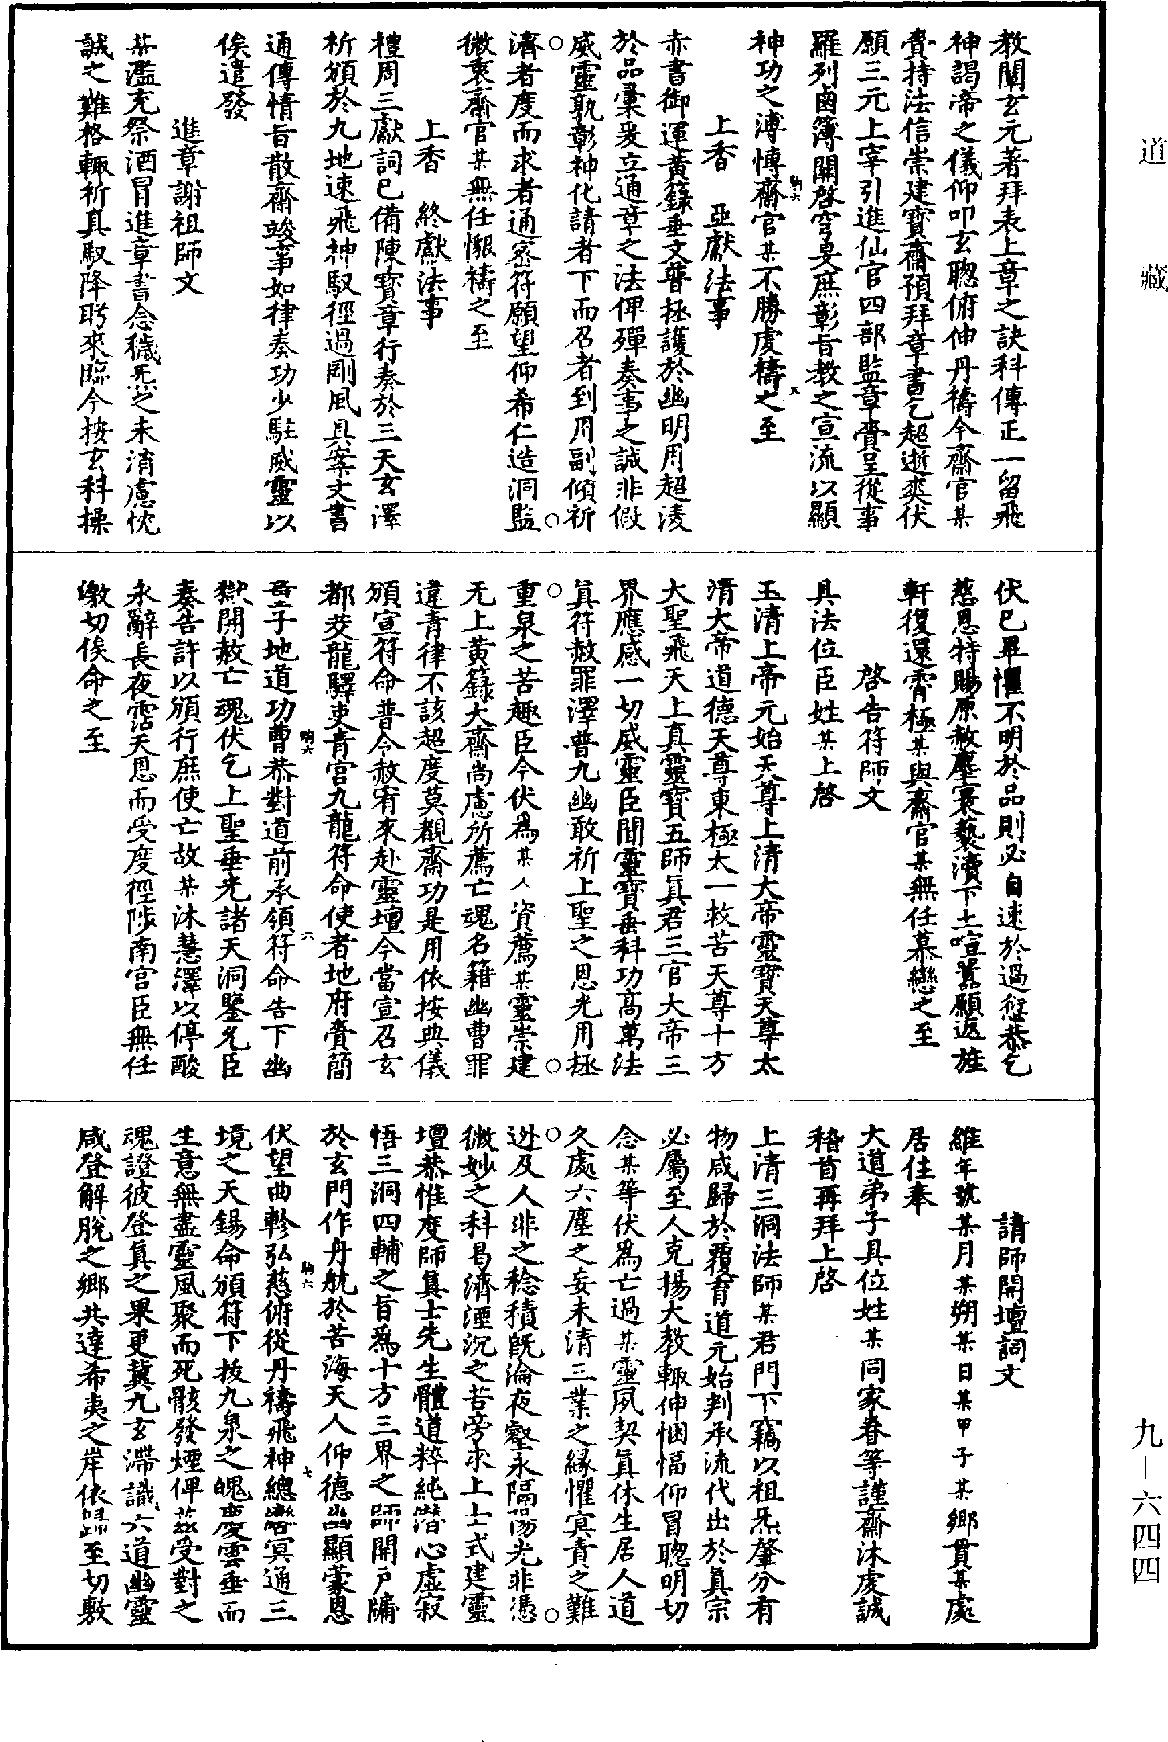 道藏
九—六四四
教闡玄元著拜表上章之訣科傳正一留飛
神謁帝之儀仰叩玄聰俯伸丹禱今齋官某
賫持法信崇建寶齋預拜章書乞超逝爽伏
願三元上宰引進仙官四部監章賫呈從事
羅列鹵簿開啓穹旻庶彰旨教之宣流以顯
神功之溥博齋官某不勝虔禱之至
上香　亞獻法事
赤書御運黃籙垂文普拯護於幽明用超淩
於品彙爰立通章之法俾殫奏事之誠非假
威靈孰彰神化請者下而召者到用副傾祈
濟者度而求者通密符願望仰希仁造洞監
微衷齋官某無任懇禱之至
上香　終獻法事
禮周三獻詞已備陳寶章行奏於三天玄澤
祈頒於九地速飛神馭徑過剛風具案文書
通傳情旨散齋竣事如律奏功少駐威靈以
俟遣發
進章謝祖師文
某濫充祭酒冒進章書念穢炁之未消慮忱
誠之難格輒祈真馭降盻來臨今按玄科操
伏已畢懼不明於品則必自速於過愆恭乞
慈恩特賜原赦塵寰褻瀆下土喧囂願返旌
軒復還霄極某與齋官某無任慕戀之至
啓告符師文
具法位臣姓某上啓
玉清上帝元始天尊上清大帝靈寶天尊太
清大帝道德天尊東極太一救苦天尊十方
大聖飛天上真靈寶五師真君三官大帝三
界應感一切威靈臣聞靈寶垂科功高萬法
真符赦罪澤普九幽敢祈上聖之恩光用拯
重泉之苦趣臣今伏爲某人資薦某靈崇建
无上黃籙大齋尚慮所薦亡魂名籍幽曹罪
違青律不該超度莫觀齋功是用依按典儀
頒宣符命普令赦宥來赴靈壇今當宣召玄
都茭龍驛吏青宮九龍符命使者地府賫簡
童子地道功曹恭對道前承領符命告下幽
獄開赦亡魂伏乞上聖垂光諸天洞鑒允臣
奏告許以頒行庶使亡故某沐慧澤以停酸
永辭長夜霑天恩而受度徑陟南宮臣無任
激切俟命之至
請師開壇詞文
維年號某月某朔某日某甲子某鄉貫某處
居住奉
大道弟子具位姓某同家眷等謹齋沐虔誠
稽首再拜上啓
上清三洞法師某君門下竊以祖炁肇分有
物咸歸於覆育道元始判承流代出於真宗
必屬至人克揚大教輒伸悃愊仰冒聰明切
念某等伏爲亡過某靈夙契真休生居人道
久處六塵之妄未清三業之緣懼冥責之難
逃及人非之稔積旣淪夜壑永隔陽光非憑
微妙之科曷濟湮沉之苦旁求上士式建靈
壇恭惟度師真士先生體道粹純潛心虛寂
悟三洞四輔之旨爲十方三界之師開戶牖
於玄門作丹航於苦海天人仰德幽顯蒙恩
伏望曲軫弘慈俯從丹禱飛神總轡冥通三
境之天錫命頒符下拔九泉之魄慶雲垂而
生意無盡靈風聚而死骸發煙俾茲受對之
魂證彼登真之果更冀九玄滯識六道幽靈
咸登解脫之鄉共達希夷之岸依歸至切敷